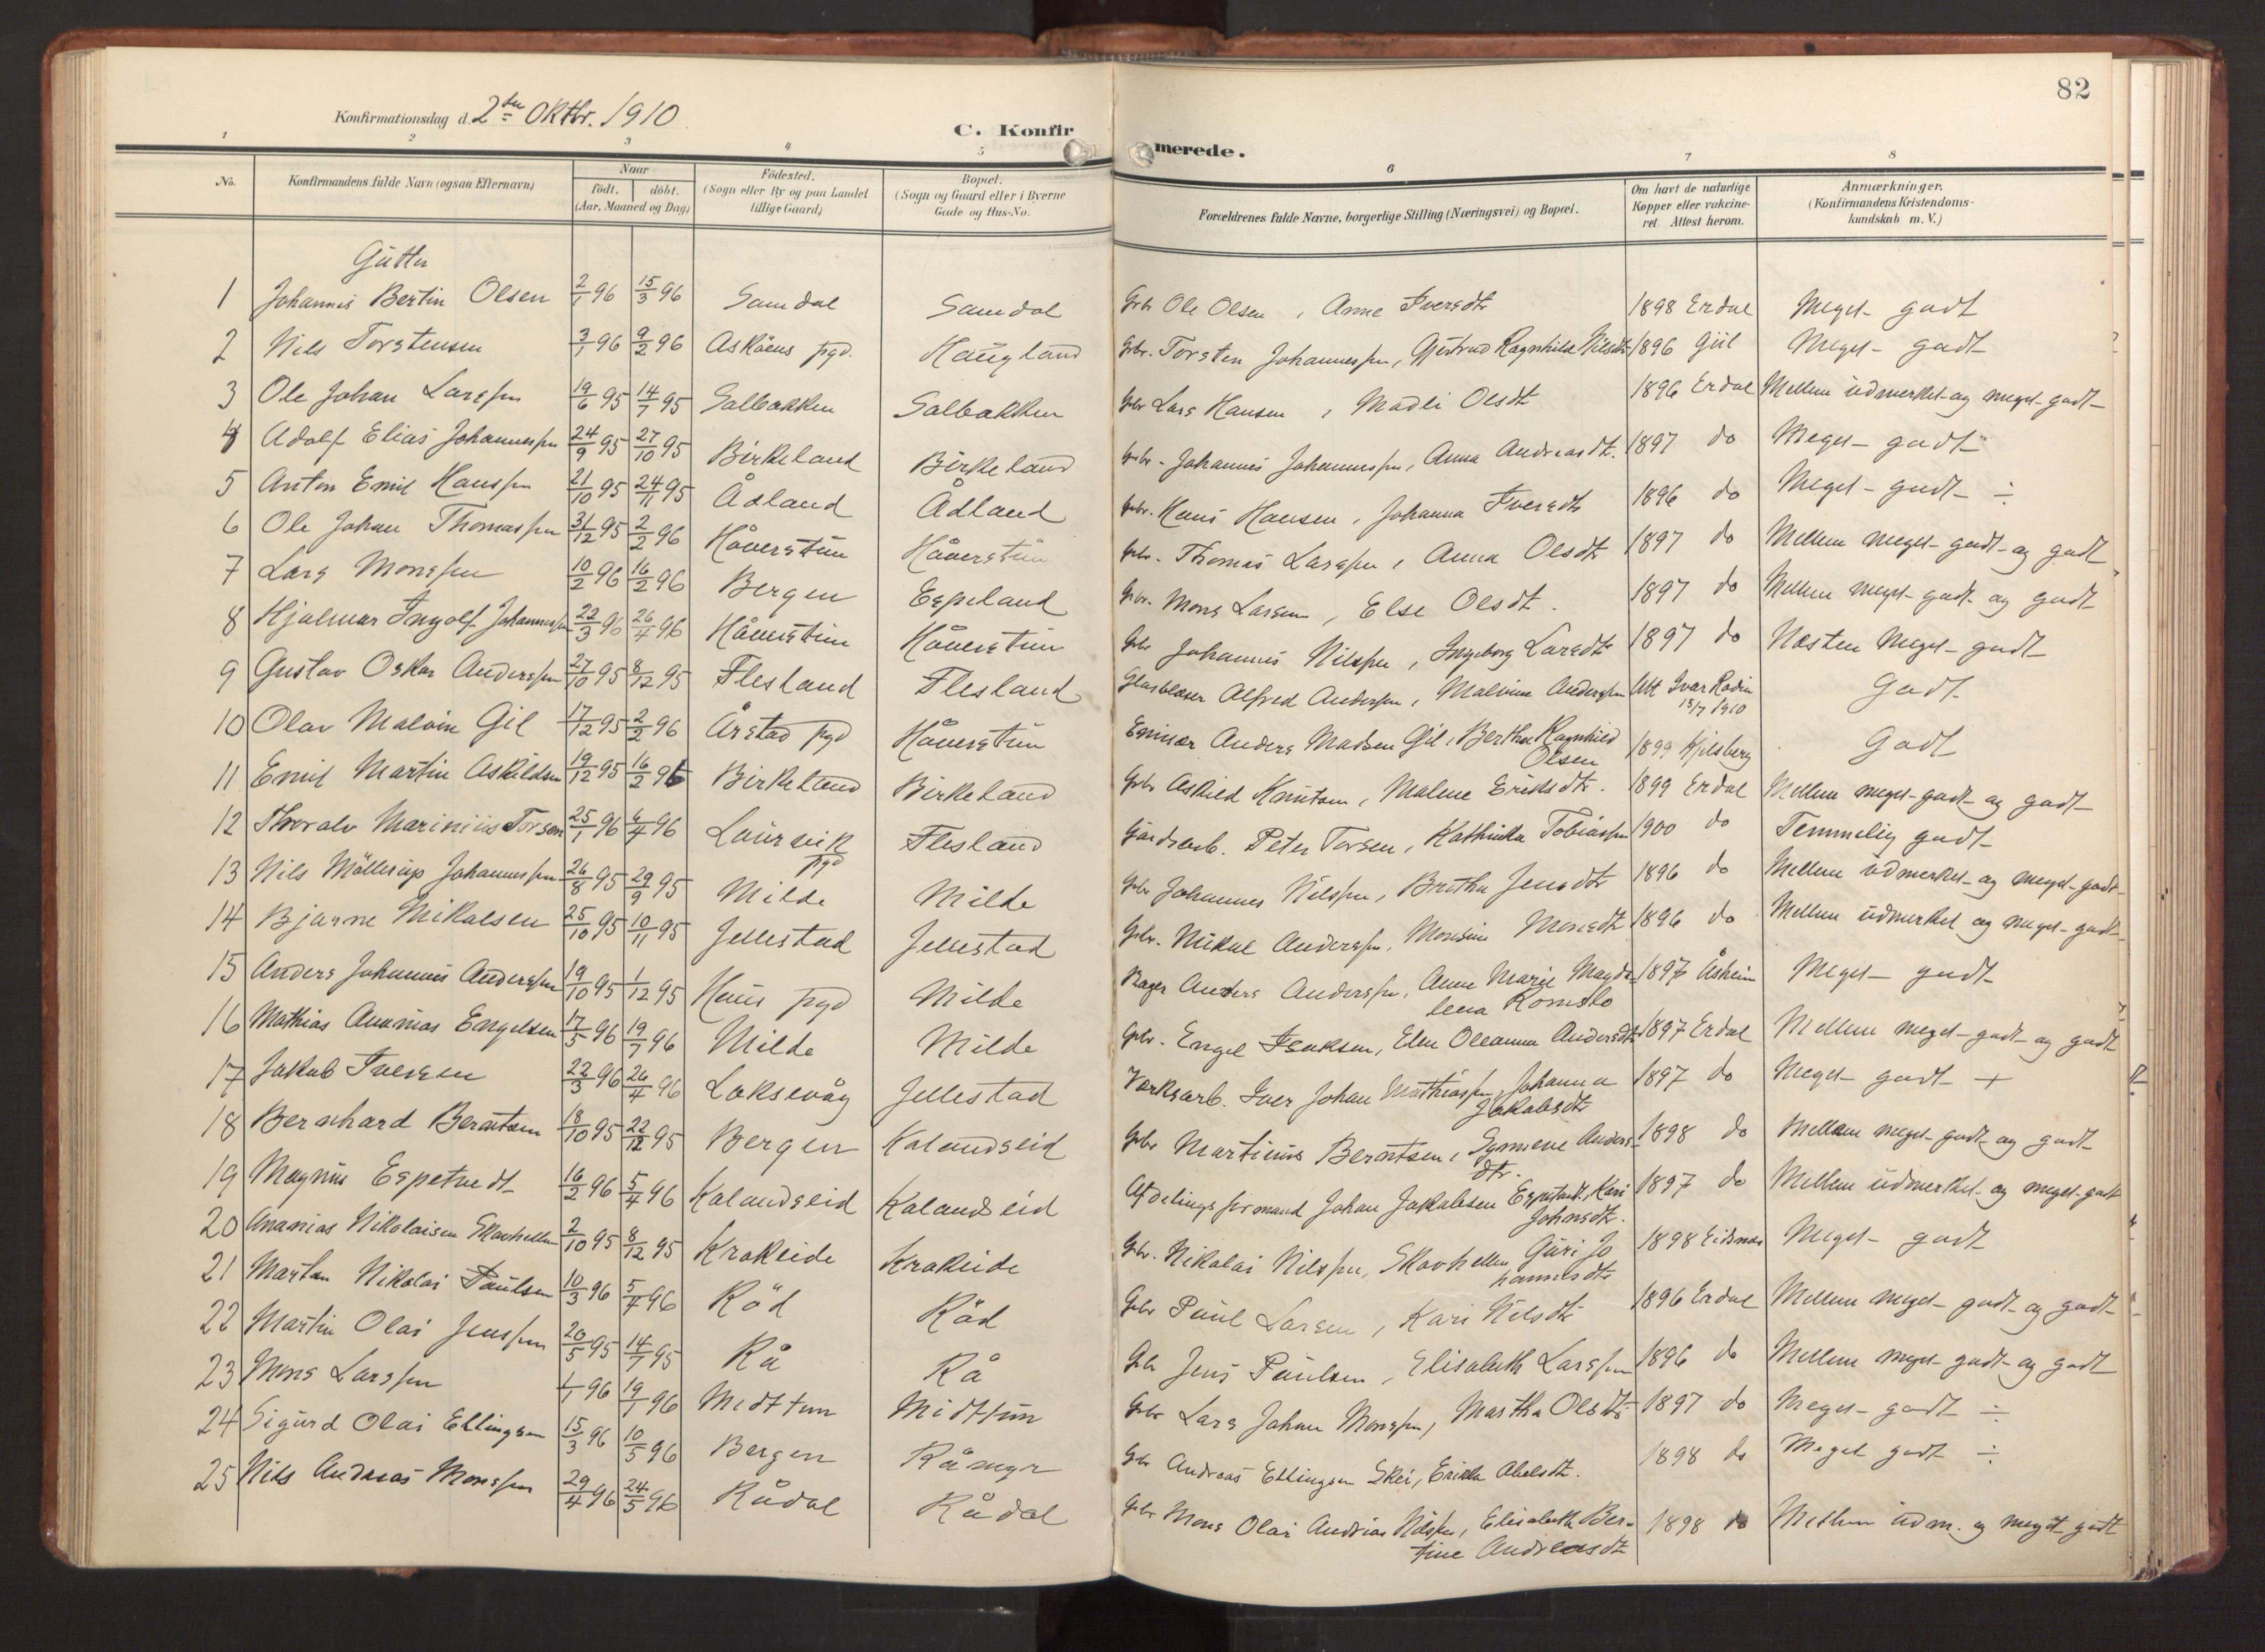 82
Konfirmationsdag d. 2den Oktbr. 1910
C. Konfirmerede.
1 2 3 4 5 6 7 8
No.
Konfirmandens fulde Navn (ogsaa Efternavn)
Naar
født. døbt.
(Aar, Maaned og Dag)
Fødested.
(Sogn eller By og paa Landet
tillige Gaard)
Bopæl.
(Sogn og Gaard eller i Byerne
Gade og Hus-No.
Forældrenes fulde Navne, borgerlige Stilling (Næringsvei) og Bopæl.
Om havt de naturlige
Kopper eller vakcine-
ret. Attest herom.
Anmærkninger.
(Konfirmandens Kristendoms-
kundskab m. V.)
Gutter
1 Johannes Bertin Olsen 2/1 96 15/3 96 Samdal Samdal Gbr Ole Olsen, Anne Iversdtr 1898 Erdal Meget godt
2 Nils Torstensen 3/1 96 9/2 96 Askøens pgd. Haugland Gbr. Torsten Johannessen, Gjertrud Ragnhilda Nilsdtr 1896 Giil Meget godt
3 Ole Johan Larssen 19/6 95 14/7 95 Salbakken Salbakken Gbr Lars Hansen, Madli Olsdtr 1896 Erdal Mellem udmerket og meget godt
4 Adolf Elias Johannessen 24/9 95 27/10 95 Birkeland Birkeland Gbr. Johannes Johannessen, Anna Andreasdtr. 1897 do Meget godt
5 Anton Emil Hanssen 21/10 95 24/11 95 Ådland Ådland Gbr. Hans Hansen, Johanna Iversdtr 1896 do Meget godt ÷
6 Ole Johan Thomassen 31/12 95 2/2 96 Håverstun Håverstun Gbr. Thomas Larssen, Anna Olsdtr 1897 do Mellem meget godt og godt
7 Lars Monssen 10/2 96 16/2 96 Bergen Espeland Gbr. Mons Larsen, Else Olsdtr. 1897 do Mellem meget godt og godt
8 Hjalmar Ingolf Johannessen 22/3 96 26/4 96 Håverstun Håverstun Gbr Johannes Nilssen, Ingeborg Larsdtr 1897 do Næsten Meget godt
9 Gustav Oskar Anderssen 27/10 95 8/12 95 Flesland Flesland Glasblæser Alfred Anderssen, Malvine Anderssen Att Ivar Rødin Godt
15/7 1910
10 Olav Malvin Gil 17/12 95 2/2 96 Årstad pgd Håverstun Emissær Anders Madsen Gil, Bertha Ragnhild 1899 Kjilsberg Godt
Olsen
11 Emil Martin Askildsen 19/12 95 16/2 96 Birkeland Birkeland Gbr Askild Knutsen, Malene Eriksdtr. 1899 Erdal Mellem meget godt og godt
12 Thoralv Marinius Torsen 25/1 96 6/4 96 Laurvik Flesland Gaardsarb. Peter Torsen, Kathinka Tobiassen 1900 do Temmelig godt
pgd
13 Nils Møllerup Johannessen 26/8 95 29/9 95 Milde Milde Gbr Johannes Nilssen, Britha Jensdtr 1896 do Mellem udmerket og meget godt
14 Bjarne Mikalsen 25/10 95 10/11 95 Jellestad Jellestad Gbr. Mikal Anderssen, Monsine Monsdtr 1896 do Mellem udmerket og meget godt
15 Anders Johannes Anderssen 19/10 95 1/12 95 Haus pgd Milde Bager Anders Anderssen, Anne Marie Magda- 1897 Åsheim Meget godt
lena Romslo
16 Mathias Ananias Engelsen 17/5 96 19/7 96 Milde Milde Gbr. Engel Isaksen, Elen Oleanna Andersdtr 1897 Erdal Mellem meget godt og godt
17 Jakob Iversen 22/3 96 26/4 96 Laksevåg Jellestad Værksarb. Iver Johan Mathiassen, Johanna 1897 do Meget godt +
Jakobsdtr
18 Bernhard Berntsen 18/10 95 22/12 95 Bergen Kalandseid Gbr Martinus Berntsen, Synneve Anders- 1898 do Mellem meget godt og godt
dtr.
19 Magnus Espetvedt 16/2 96 5/4 96 Kalandseid Kalandseid Afdelingsformand Johan Jakobsen Espetvedt, Kari 1897 do Mellem udmerket og meget godt
Johnsdtr.
20 Ananias Nikolaisen Skavhellen 2/10 95 8/12 95 Krokeide Krokeide Gbr. Nikolai Nilssen, Skavhellen Guri Jo 1898 Eidsnes Meget godt
hannesdtr
21 Martin Nikolai Paulsen 10/3 96 5/4 96 Råd Råd Gbr Paul Larsen, Kari Nilsdtr 1896 Erdal Mellem meget godt og godt
22 Martin Olai Jenssen 26/5 95 14/7 95 Rå Rå Gbr Jens Paulsen, Elisabeth Larssen 1896 do Mellem meget godt og godt
23 Mons Larssen 1/1 96 19/1 96 Midttun Midttun Gbr Lars Johan Monssen, Martha Olsdtr 1897 do Meget godt ÷
24 Sigurd Olai Ellingsen 15/3 96 10/5 96 Bergen Råmyr Gbr Andreas Ellingsen Skei, Erikka Abelsdtr. 1898 do Meget godt ÷
25 Nils Andreas Monssen 29/4 96 24/5 96 Rådal Rådal Gbr Mons Olai Andreas Nilssen, Elisabeth Ber- 1898 do Mellem udm. og meget godt
tine Andreasdtr